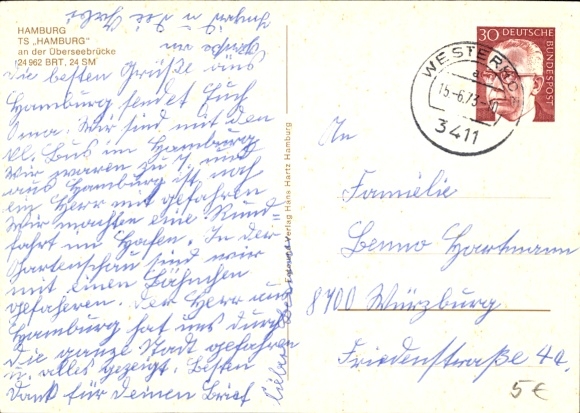 HAMBURG
TS „HAMBURG"
an der Überseebrücke
24 962 BRT, 24 SM
Die besten Grüße aus
Hamburg sendet Euch
Oma. Wir sind mit den
Vl. Bus im Hamburg
Wir waren zu 7. und
aus Hamburg ist noch
ein Herr mit gefahren
Wir machten eine Rund-
fahrt im Hafen. In der
Gartenschau sind wir
mit einen Bähnchen
gefahren. Der Herr aus
Hamburg hat uns durch
die ganze Stadt gefahren
u. alles gezeigt. Besten
Dank für Deinen Brief
lieber
in die
Verlag Hans Hartz Hamburg
30 DEUTSCHE
BUNDESPOST
WESTERHOF
a
15.-6.73
3411
An
Familie
Benno Hartmann
8700 Würzburg
Friedenstraße 4a.
5€